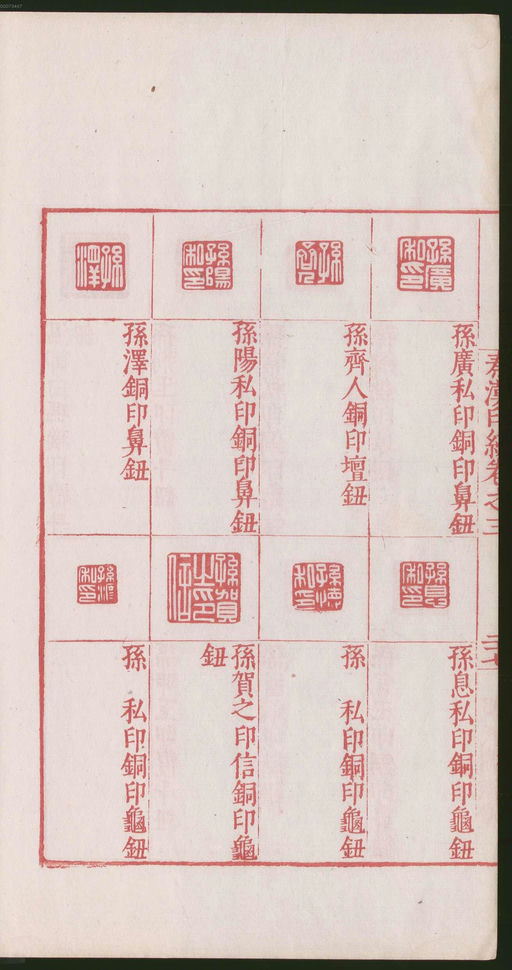 孫廣私印銅印鼻鈕
孫齊人銅印壇鈕
孫陽私印銅印鼻鈕
孫澤銅印鼻鈕
孫息私印銅印龜鈕
孫 私印銅印龜鈕
孫賀之印信銅印龜
鈕
孫 私印銅印龜鈕
卷之三